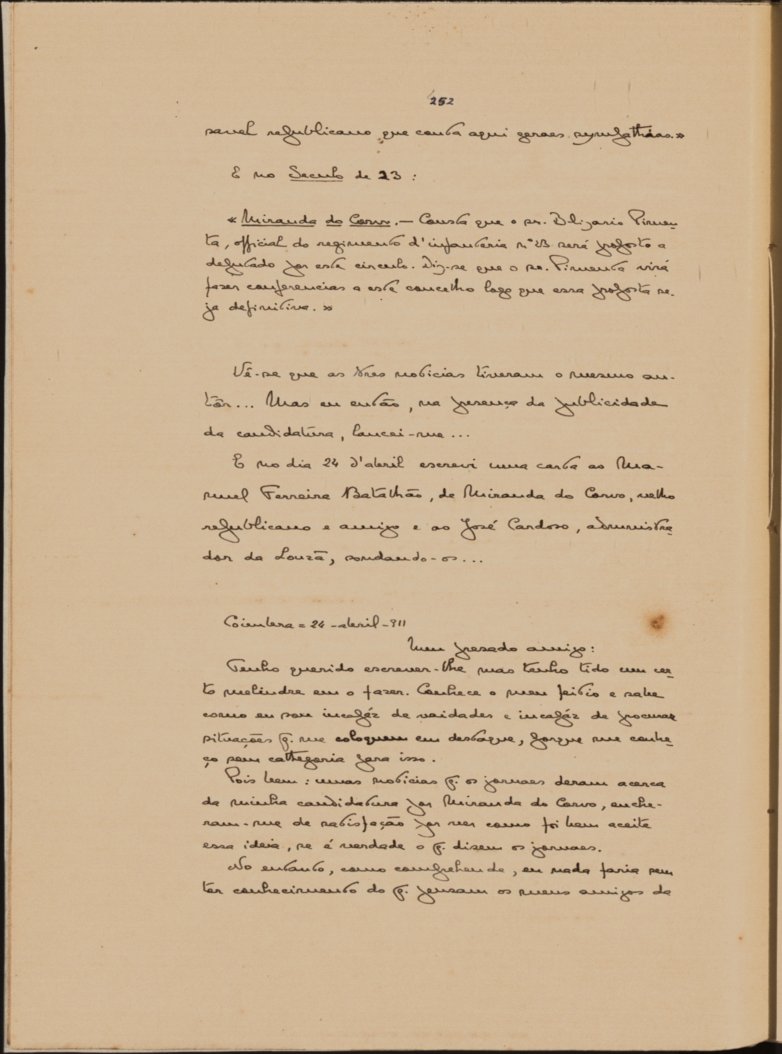 252
savel republicano que conta aqui geraes sympathias.»
E no Seculo de 23 :
« Miranda do Corvo. — Consta que o sr. Blizario Pimen-
ta, official do regimento d'infanteria n.º 23 será proposto a
deputado por este circulo. Diz-se que o sr. Pimenta virá
fazer conferencias a este concelho logo que essa proposta se-
ja definitiva. »
Vê-se que as tres noticias tiveram o mesmo au-
tôr... Mas eu então, na presença da publicidade
da candidatura, lancei-me...
E no dia 24 d'abril escrevi uma carta ao Ma-
nuel Ferreira Batalhão, de Miranda do Corvo, velho
republicano e amigo e ao José Cardoso, administra-
dor da Louzã, sondando-os...
Coimbra = 24 - abril - 911
Meu presado amigo:
Tenho querido escrever-lhe mas tenho tido um cer-
to melindre em o fazer. Conhece o meu feitio e sabe
como eu sou incapáz de vaidades e incapáz de procurar
situações q. me coloquem em destaque, porque me conhe-
ço sem cathegoria para isso.
Pois bem: umas noticias q. os jornaes deram acerca
da minha candidatura por Miranda do Corvo, enche-
ram-me de satisfação por ver como foi bem aceite
essa ideia, se é verdade o q. dizem os jornaes.
No entanto, como comprehende, eu nada faria sem
ter conhecimento do q. pensam os meus amigos da